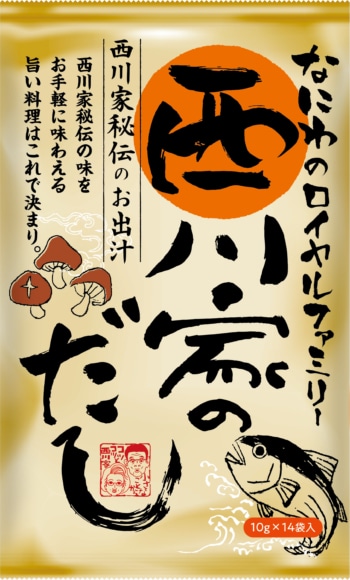 なにわのロイヤルファミリー
西川家の
だし
西川家秘伝のお出汁
西川家秘伝の味を
お手軽に味わえる
旨い料理はこれで決まり。
10g×14袋入